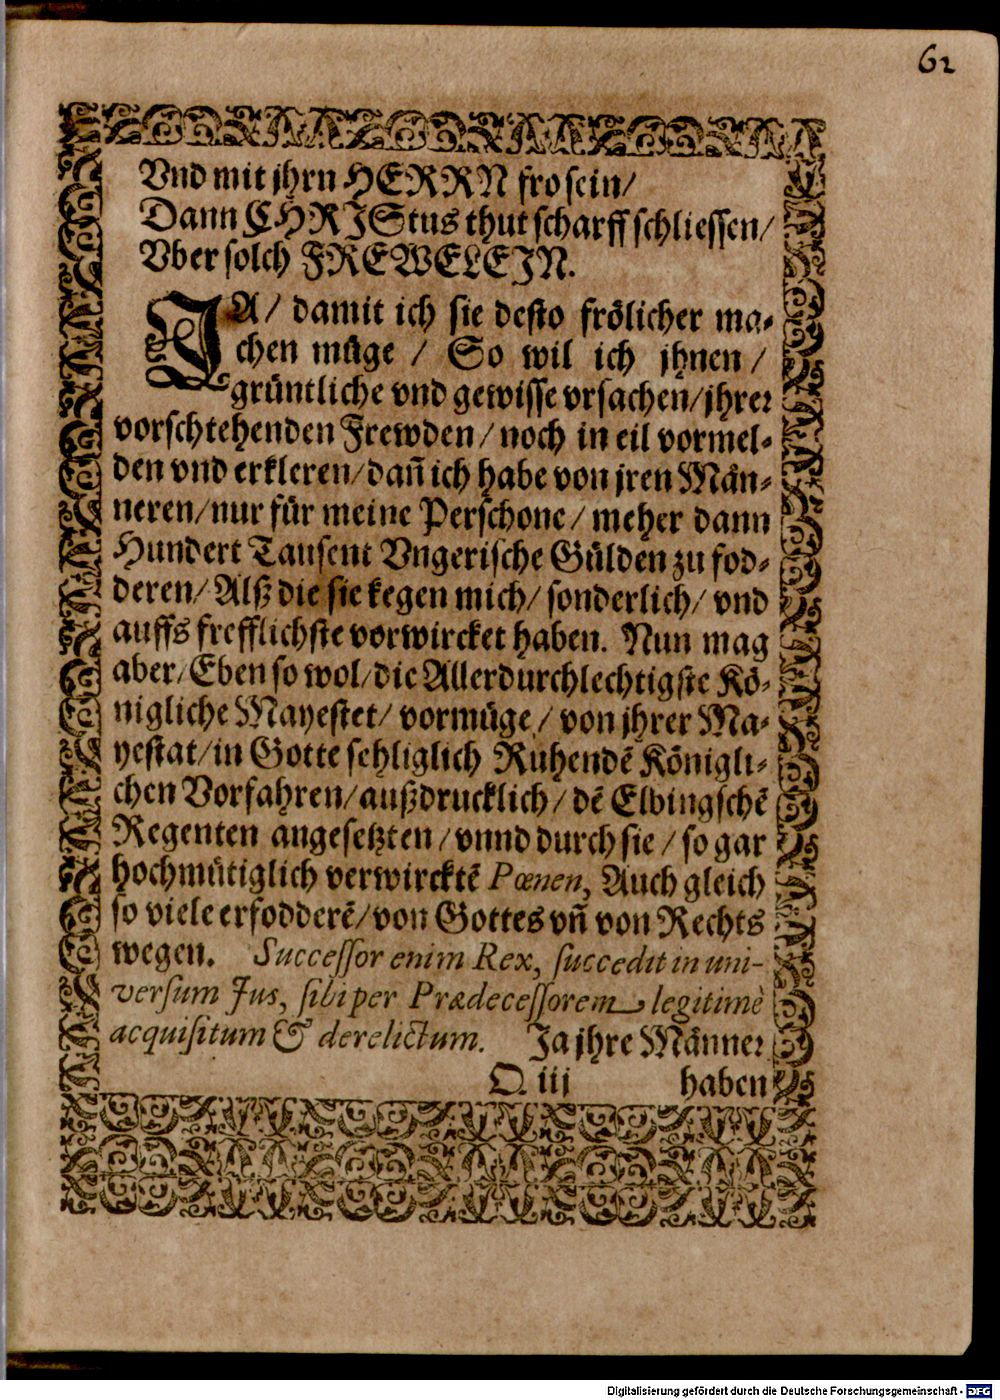 62
Vnd mit jhrn HERRN fro sein/
Dann CHRJStus thut scharff schliessen/
Vber solch FREWELEJN.
JA/ damit ich sie desto frölicher ma-
chen müge / So wil ich jhnen /
gründtliche vnd gewisse vrsachen/ jhrer
vorschtehenden Frewden/ noch in eil vormel-
den vnd erkleren/ dañ ich habe von jren Män-
neren/ nur für meine Perschone/ meher dann
Hundert Tausent Vngerische Gülden zu fod-
deren/ Alß die sie kegen mich/ sonderlich/ vnd
auffs frefflichste vorwircket haben. Nun mag
aber/ Eben so wol/ die Allerdurchlechtigste Kö-
nigliche Mayestet/ vormüge/ von jhrer Ma-
yestat/ in Gotte sehliglich Ruhendẽ Königli-
chen Vorfahren/ außdrucklich/ dẽ Elbingschẽ
Regenten angesetzten/ vnnd durch sie / so gar
hochmütiglich verwircktẽ Pœnen, Auch gleich
so viele erfodderẽ/ von Gottes vñ von Rechts
wegen. Successor enim Rex, succedit in uni-
versum Jus, sibi per Prædecessorem legitimè
acquisitum & derelictum. Ja jhre Männer
Q iij haben
Digitalisierung gefördert durch die Deutsche Forschungsgemeinschaft - DFG